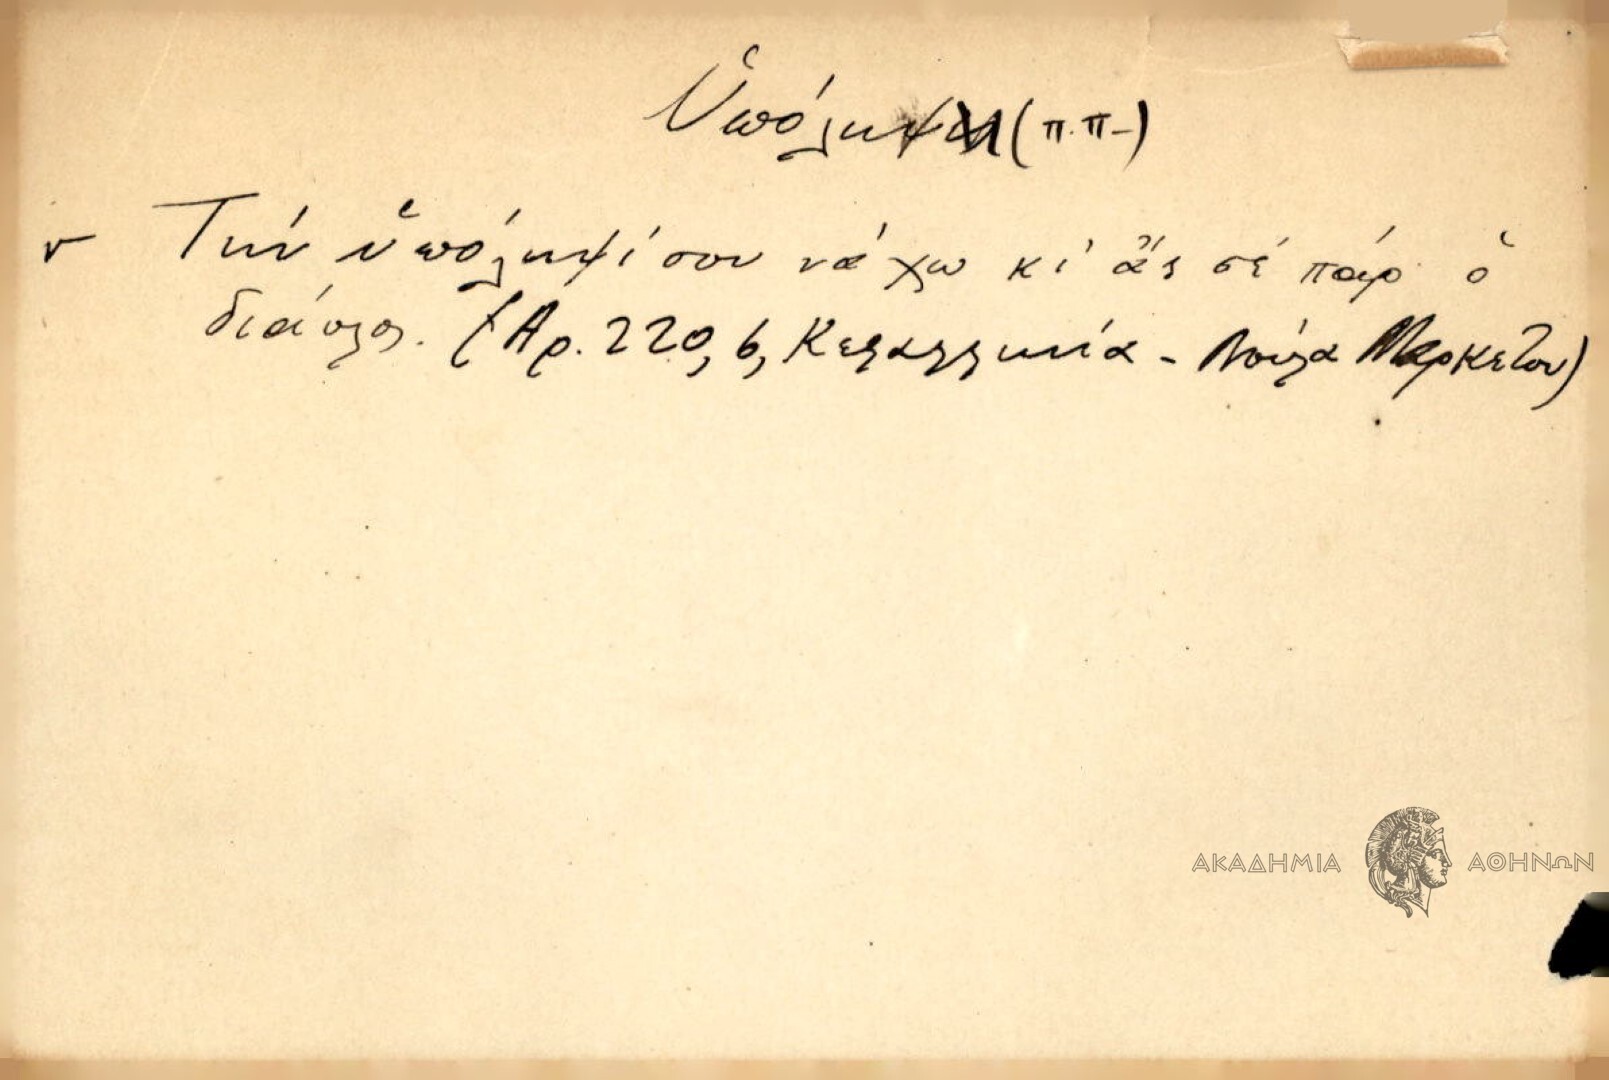 Ὑπόληψη (π.π-)
Τήν ὑπόληψί σου νά χω κι' ἄς σέ πάρ' ὁ
διάολος. (Ἀρ. 220, 6, Κεφαλληνία - Λούλα Μαρκέτου)
ΑΚΑΔΗΜΙΑ ΑΘΗΝΩΝ